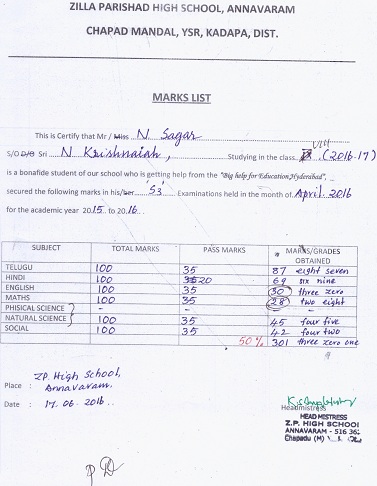 ZILLA PARISHAD HIGH SCHOOL, ANNAVARAM
CHAPAD MANDAL, YSR, KADAPA, DIST.
MARKS LIST
This is Certify that Mr / Miss N Sagar
S/O D/O Sri N Krishnaiah, Studying in the class VIII (2016-17)
is a bonafide student of our school who is getting help from the "Big help for Education, Hyderabad",
secured the following marks in his/her S3 Examinations held in the month of April. 2016
for the academic year 2015 to 2016..
SUBJECT TOTAL MARKS PASS MARKS MARKS/GRADES OBTAINED
TELUGU 100 35 87 eight seven
HINDI 100 20 69 six nine
ENGLISH 100 35 30 three zero
MATHS 100 35 28 two eight
PHISICAL SCIENCE - - -
NATURAL SCIENCE 100 35 45 four five
SOCIAL 100 35 42 four two
50% 301 three zero one
Place : Z.P. High School, Annavaram.
Date : 17.06.2016..
Headmistress
HEAD MISTRESS
Z.P. HIGH SCHOOL
ANNAVARAM - 516 36
Chapadu (M)